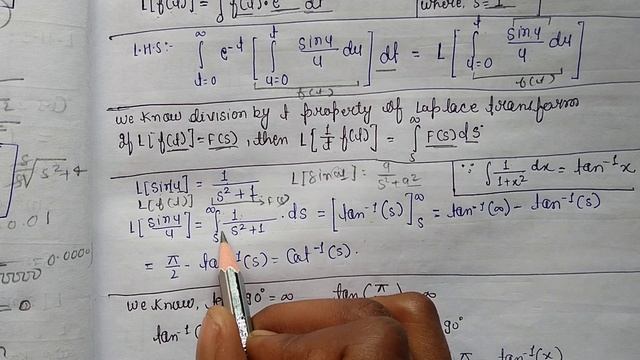 L[f(t)] = ∫ f(t) · e dt where, s = 1
L.H.S:- ∞∫t=0 e^-t [ t∫u=0 sinu/u du ] dt = L [ t∫u=0 sinu/u du ]
f(t) f(t)
we know division by t property of Laplace transform
If L[f(t)] = F(s), then L[1/t f(t)] = ∞∫s F(s) ds
L[sinu] = 1/s²+1 L[sin at] = a/s²+a² ∵ ∫ 1/1+x² dx = tan⁻¹x
L[f(t)] F(s)
L[sinu/u] = ∞∫s 1/s²+1 · ds = [tan⁻¹(s)]∞s = tan⁻¹(∞) - tan⁻¹(s)
= π/2 - tan⁻¹(s) = Cot⁻¹(s).
we know, 90° = ∞ tan(π ∞
tan⁻¹( 90°
π tan⁻¹(x)
s
√s²+4
0.01
0.0000